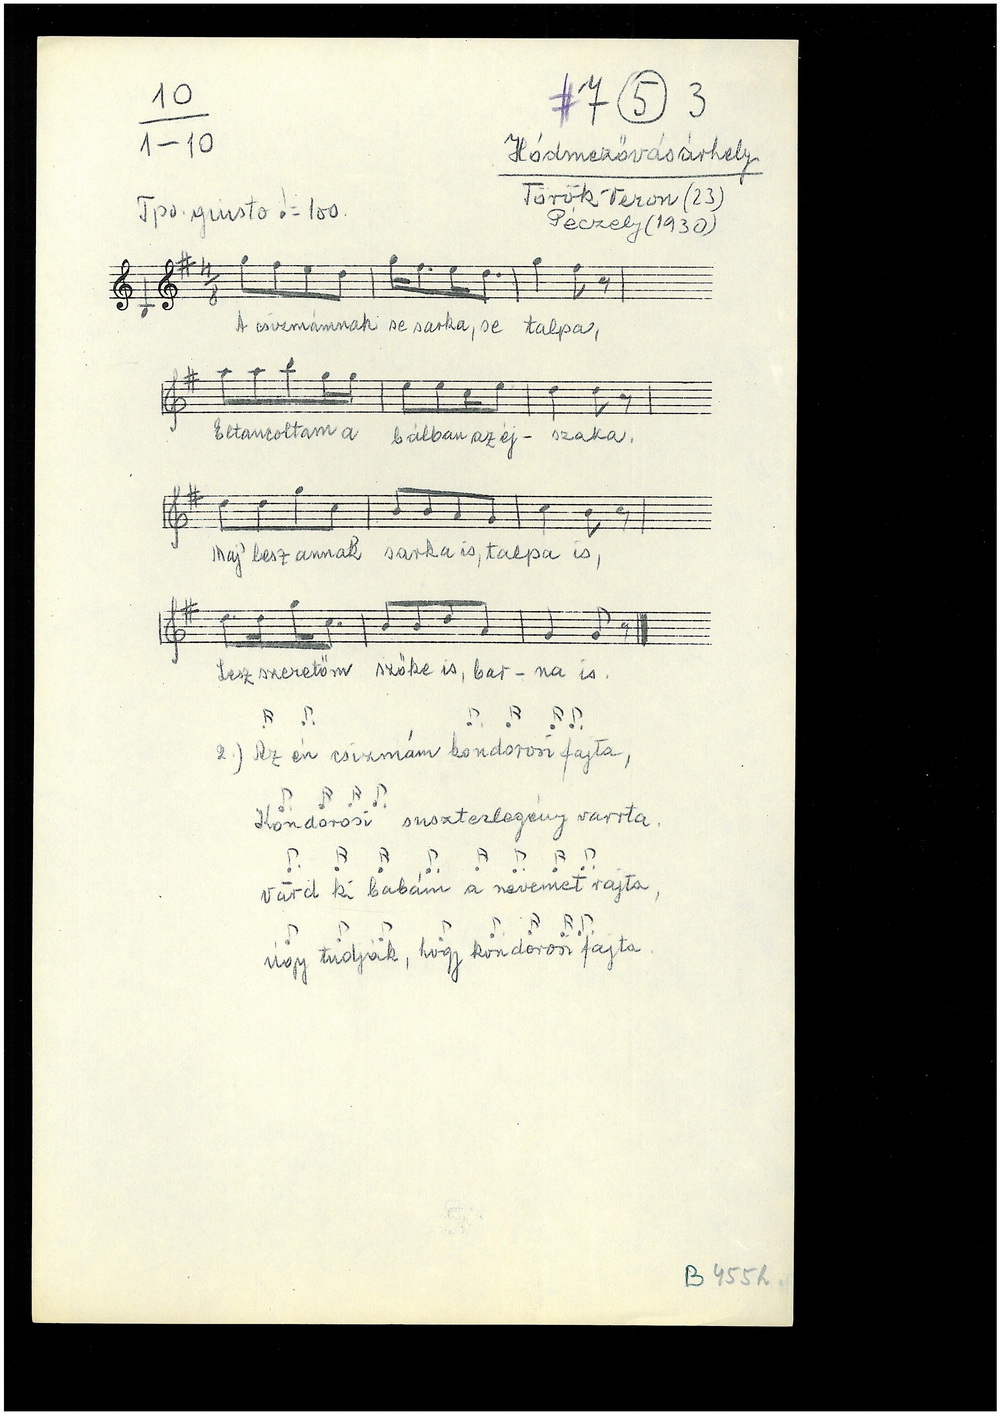 10
1–10
#7 (5) 3
Hódmezővásárhely
Török Teron (23)
Péczely (1930)
Tpo. giusto ♩= 100.
4/8
A csizmámnak se sarka, se talpa,
Eltáncoltam a bálban az éj- szaka.
Maj' lesz annak sarka is, talpa is,
Lesz szeretőm szőke is, bar- na is.
2.) Az én csizmám kondorosi fajta,
Kondorosi suszterlegény varrta.
Várd ki babám a nevemet rajta,
Úgy tudják, hogy kondorosi fajta.
B 455